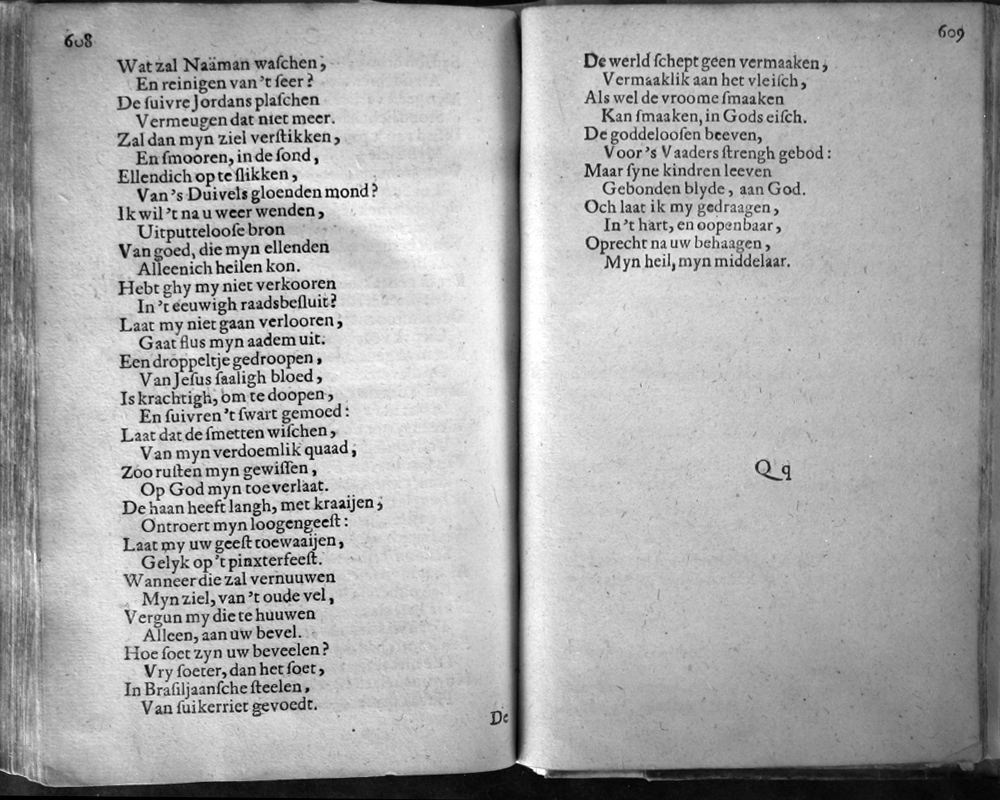 608
Wat zal Naäman waſchen,
En reinigen van 't ſeer?
De ſuivre Jordans plaſchen
Vermeugen dat niet meer.
Zal dan myn ziel verſtikken,
En ſmooren, in de ſond,
Ellendich op te ſlikken,
Van 's Duivels gloenden mond?
Ik wil 't na u weer wenden,
Uitputtelooſe bron
Van goed, die myn ellenden
Alleenich heilen kon.
Hebt ghy my niet verkooren
In 't eeuwigh raadsbeſluit?
Laat my niet gaan verlooren,
Gaat flus myn aadem uit.
Een droppeltje gedroopen,
Van Jeſus ſaaligh bloed,
Is krachtigh, om te doopen,
En ſuivren 't ſwart gemoed:
Laat dat de ſmetten wiſchen,
Van myn verdoemlik quaad,
Zoo ruſten myn gewiſſen,
Op God myn toeverlaat.
De haan heeft langh, met kraaijen;
Ontroert myn loogengeeſt:
Laat my uw geeſt toewaaijen,
Gelyk op 't pinxterfeeſt.
Wanneer die zal vernuuwen
Myn ziel, van 't oude vel,
Vergun my die te huuwen
Alleen, aan uw bevel.
Hoe ſoet zyn uw beveelen?
Vry ſoeter, dan het ſoet,
In Braſiljaanſche ſteelen,
Van ſuikerriet gevoedt.
De
609
De werld ſchept geen vermaaken,
Vermaaklik aan het vleiſch,
Als wel de vroome ſmaaken
Kan ſmaaken, in Gods eiſch.
De goddelooſen beeven,
Voor 's Vaaders ſtrengh gebod:
Maar ſyne kindren leeven
Gebonden blyde, aan God.
Och laat ik my gedraagen,
In 't hart, en oopenbaar,
Oprecht na uw behaagen,
Myn heil, myn middelaar.
Qq